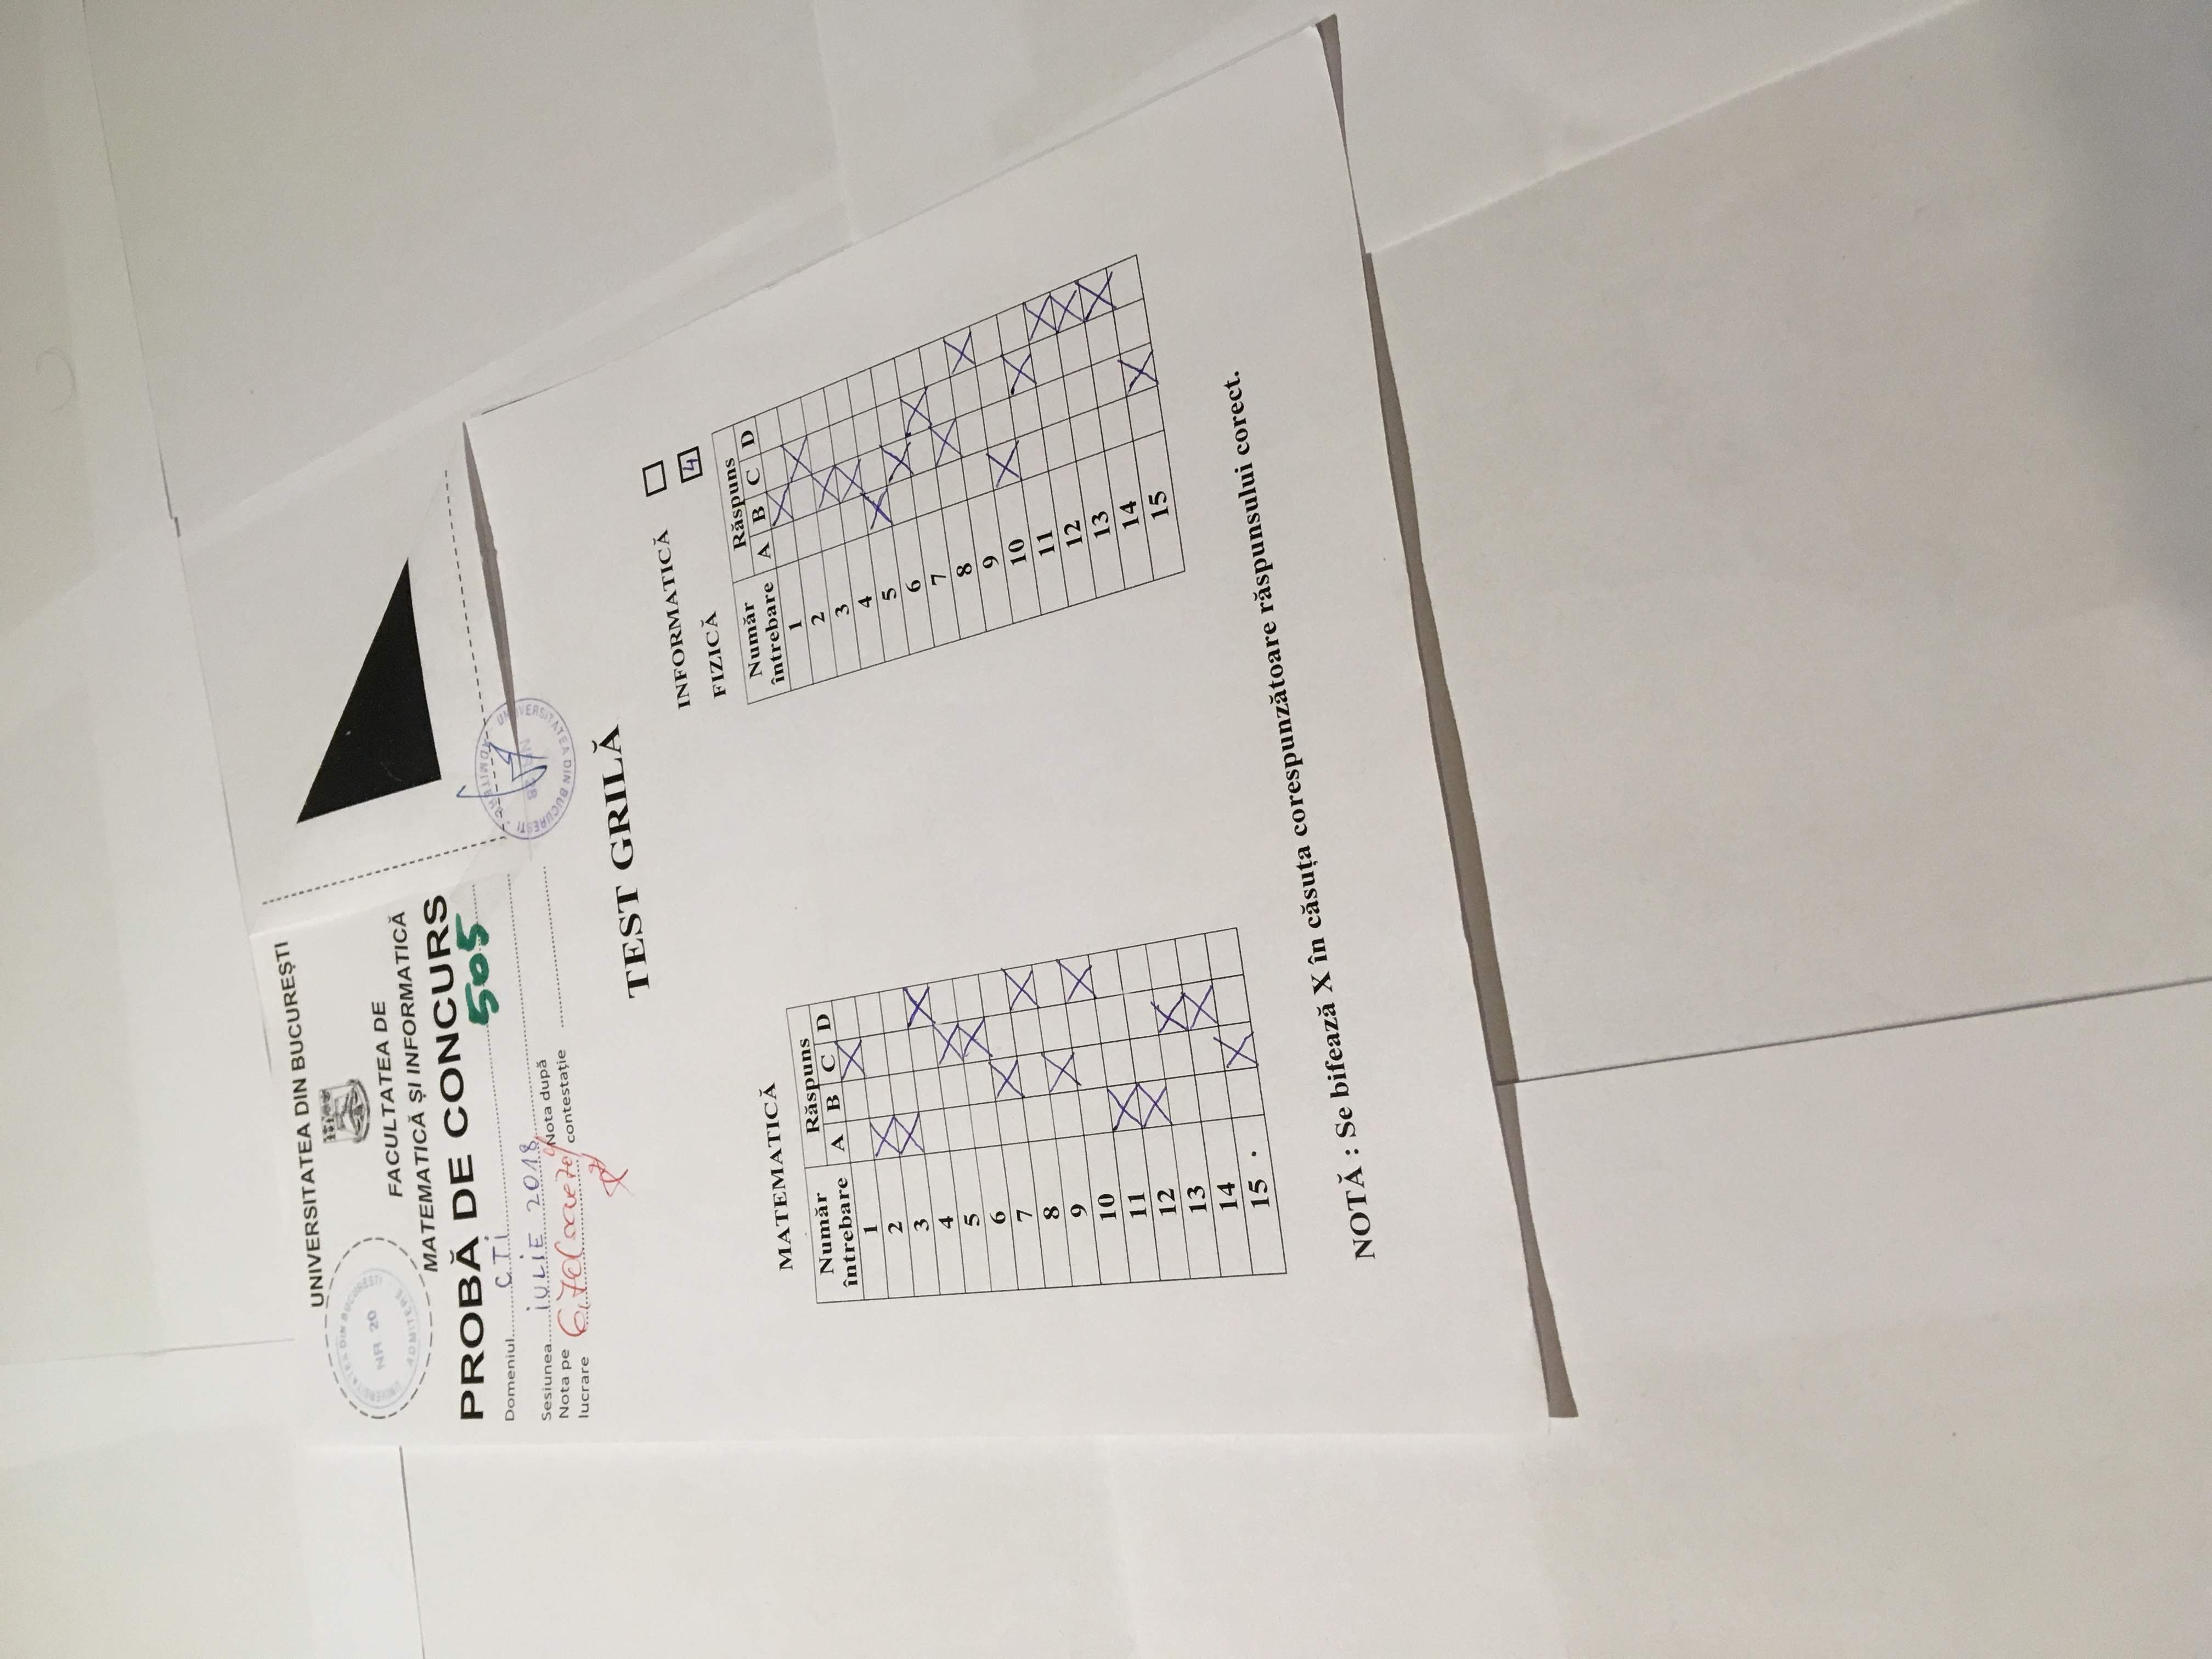 UNIVERSITATEA DIN BUCUREȘTI
UNIVERSITATEA DIN BUCUREȘTI
NR 20
ADMITERE
FACULTATEA DE
MATEMATICĂ ȘI INFORMATICĂ
PROBĂ DE CONCURS
505
Domeniul CTI
Sesiunea IULIE 2018
Nota pe lucrare 6,70
Nota după contestație
UNIVERSITATEA DIN BUCUREȘTI - ADMITERE
TEST GRILĂ
INFORMATICĂ
FIZICĂ 4
MATEMATICĂ
Număr întrebare Răspuns
A B C D
1 X
2 X
3 X
4 X
5 X
6 X
7 X
8 X
9 X
10 X
11 X
12 X
13 X
14 X
15 X
Număr întrebare Răspuns
A B C D
1 X
2 X
3 X
4 X
5 X
6 X
7 X
8 X
9 X
10 X
11 X
12 X
13 X
14 X
15 X
NOTĂ : Se bifează X în căsuța corespunzătoare răspunsului corect.